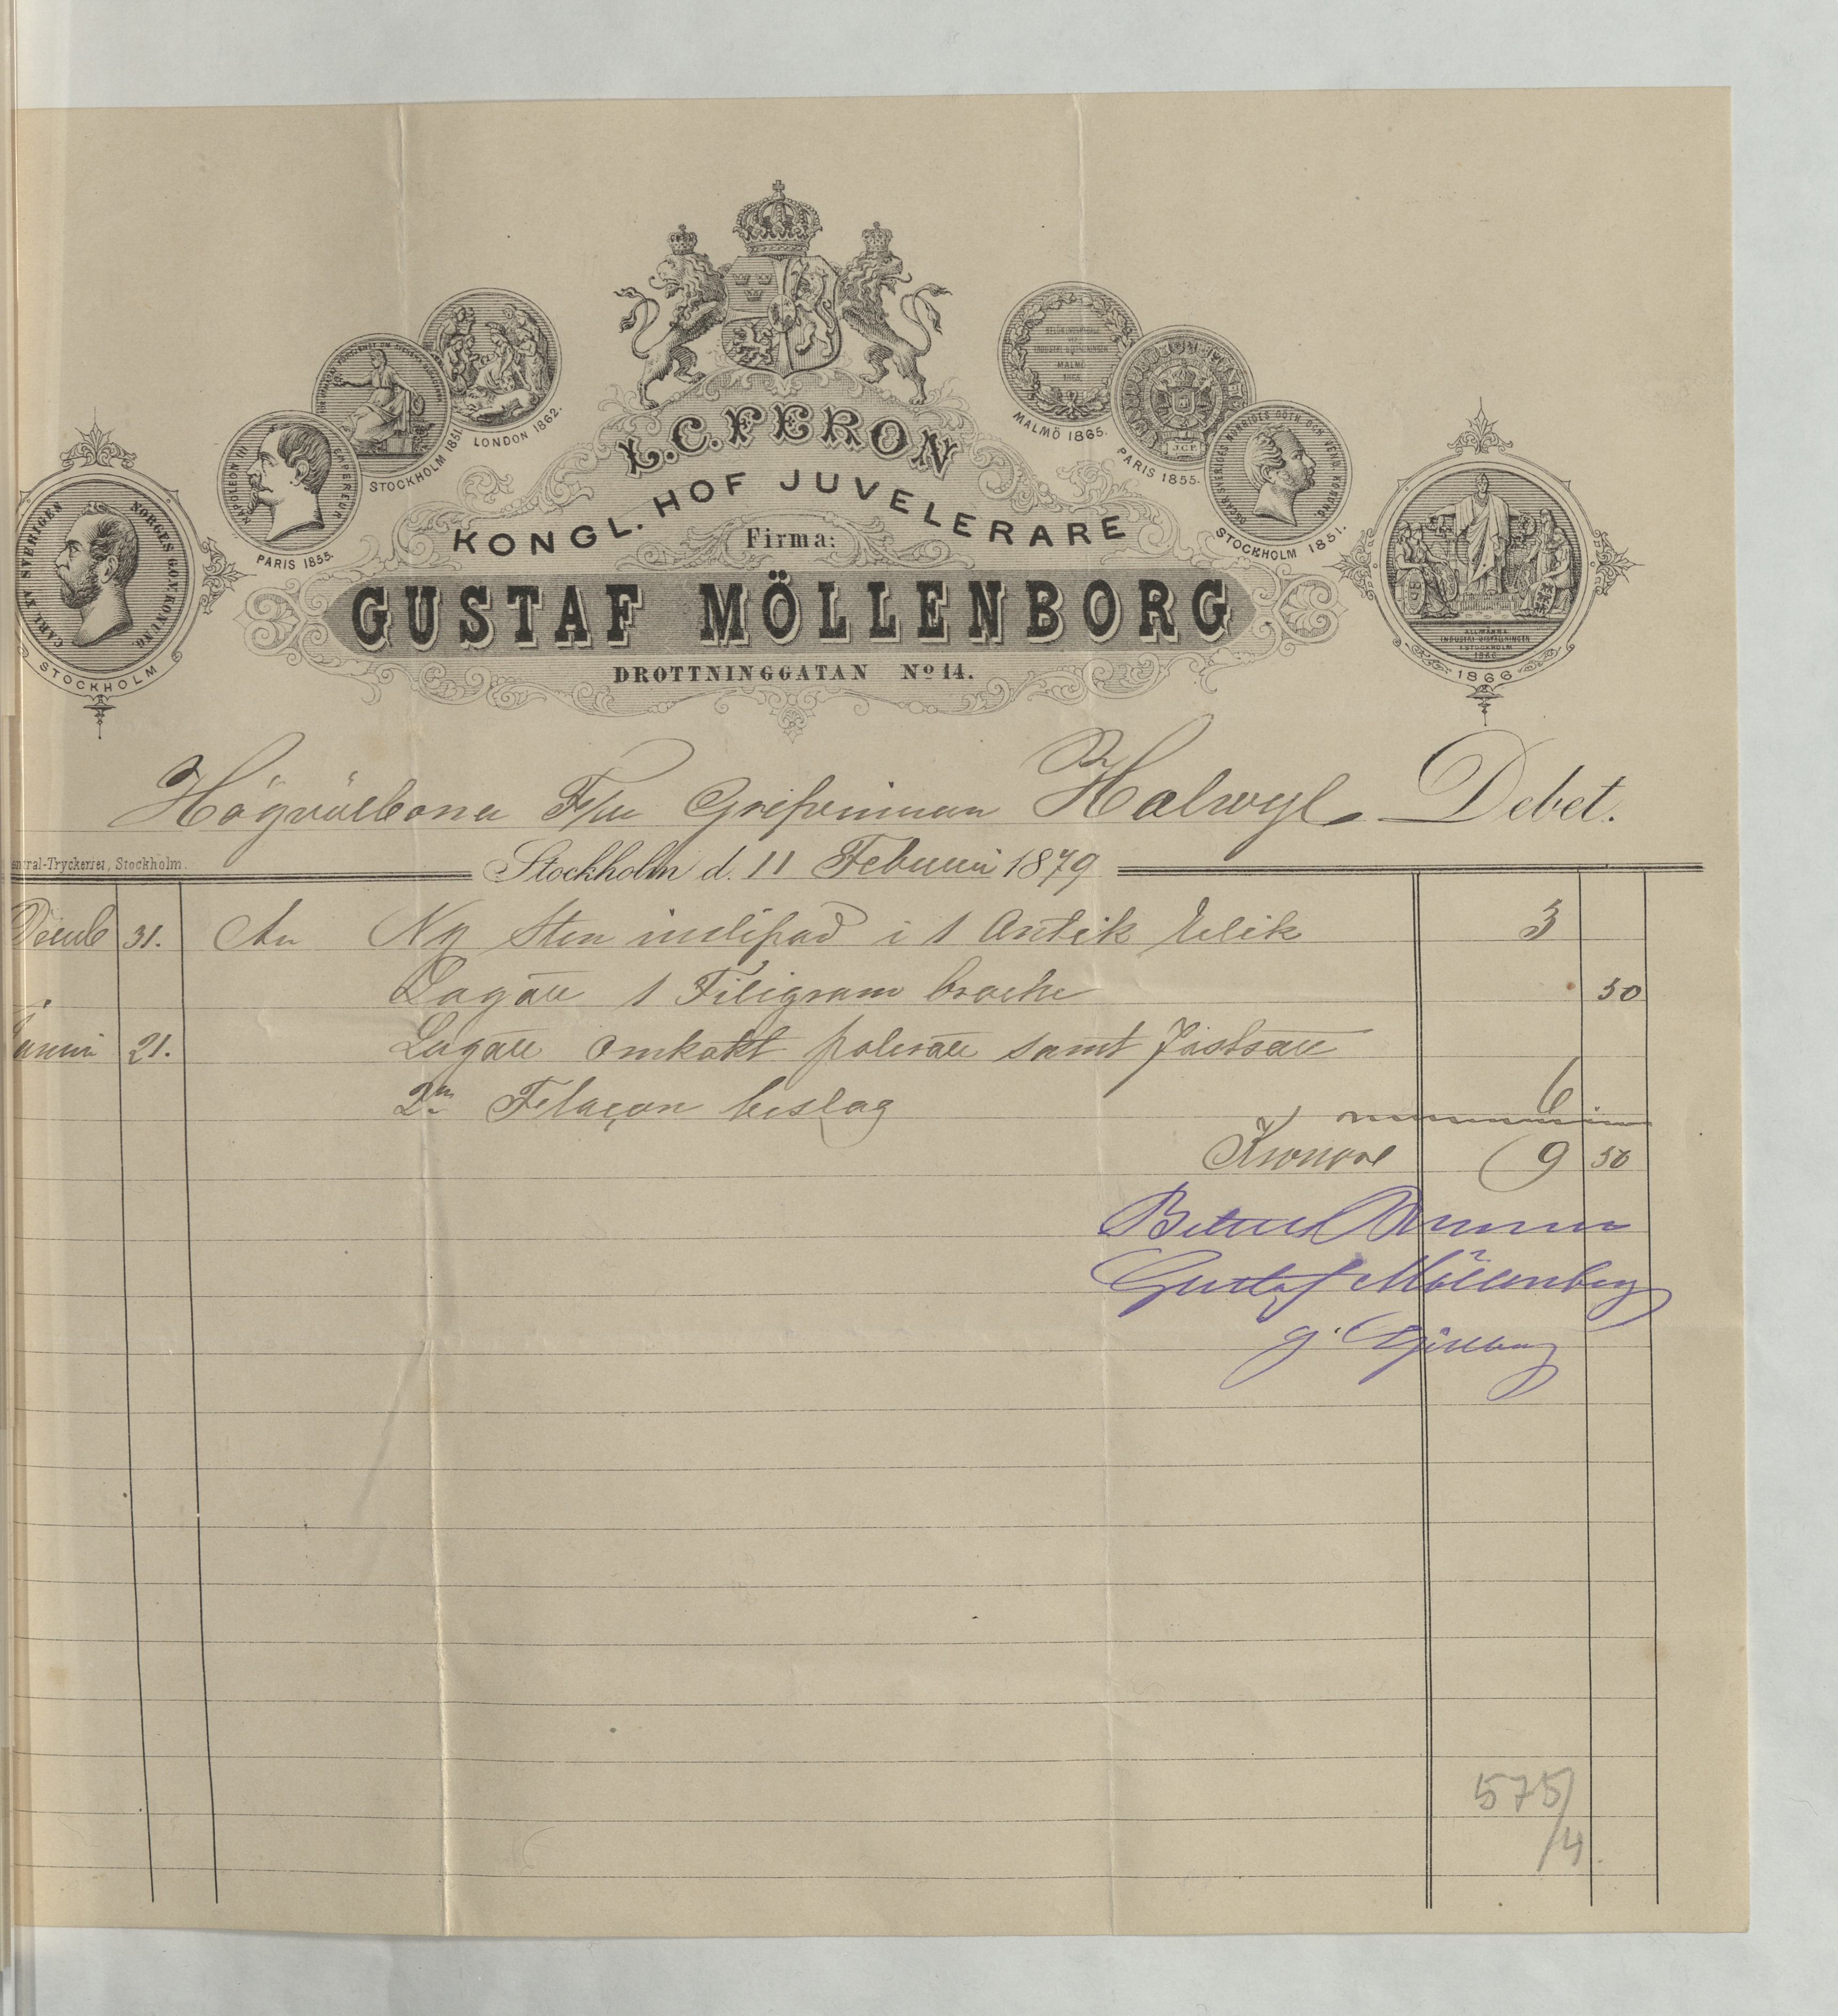 L. C. FERON
KONGL. HOF JUVELERARE
Firma:
GUSTAF MÖLLENBORG
DROTTNINGGATAN No 14.
CARL XV SVERIGES NORGES KONUNG
STOCKHOLM
NAPOLEON III EMPEREUR
PARIS 1855.
STOCKHOLM 1851.
LONDON 1862.
MALMÖ 1865.
PARIS 1855.
J.C.F.
OSCAR SVERIGES NORRIGES GÖTH. OCH VEND. KONUNG.
STOCKHOLM 1851.
ALLMÄNNA
INDUSTRI UTSTÄLLNINGEN
I STOCKHOLM
1866
1866
Högvälborna Fru Grefvinnan Halwyl Debet.
entral-Tryckeriet, Stockholm.
Stockholm d. 11 Februari 1879
Decemb 31. An Ny Sten inslipad i 1 Antik 3
Lagat 1 Filigram broche 50
Januari 21. Lagat omkokt polerat samt
2ne Flaçon beslag 6
Kronor 9 50
Gustaf Möllenborg
575/
/4.